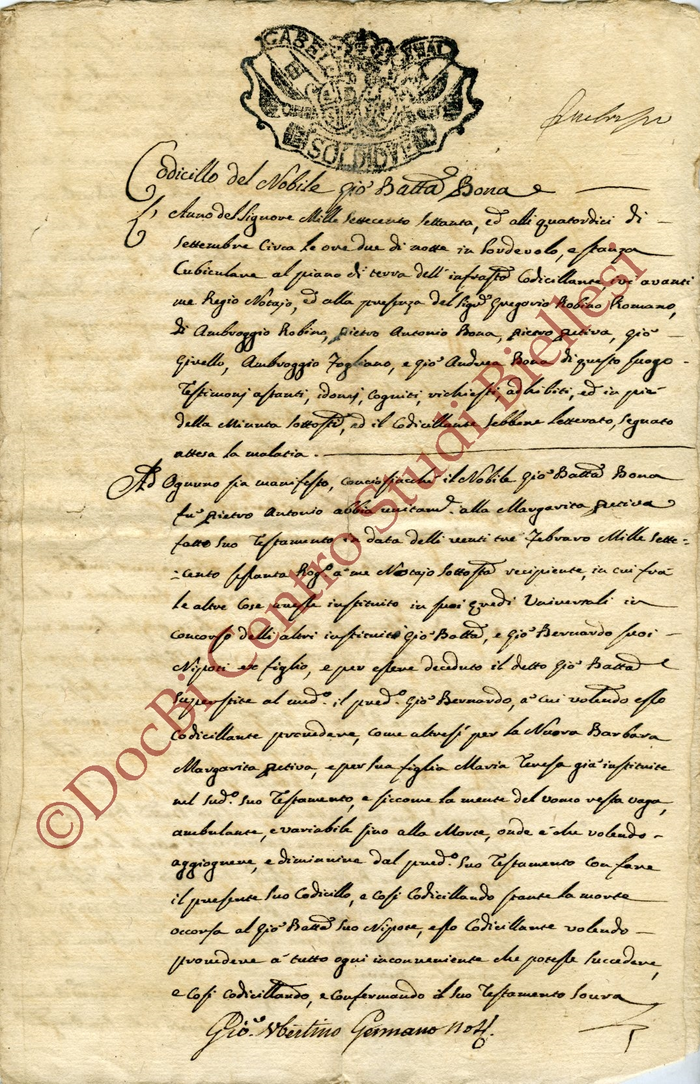 GABEL GENAL
SOLDI DVE
Codicillo del Nobile Gio: Batta Bona
L'Anno del Signore Mille Settecento Settanta, ed alli quatordici di
Settembre Circa le ore due di notte in Sordevolo, e stanza
Cubiculare al piano di terra dell'infrasto Codicillante ivi avanti
me Regio Notajo, ed alla presenza del Sigr Gregorio Robino Romano,
di Ambroggio Robino, Pietro Antonio Bona, Pietro Petiva, Gio
Givello, Ambroggio Fogliano, e Gio Andrea Bona di questo luogo
Testimonj astanti, idonej, cogniti, richiesti, adhibiti, ed in piè
della Minuta Sottosti, ed il Codicillante Sebbene letterato, segnato
attesa la malatia.
Ad Ognuno sia manifesto, conciosiacche il Nobile Gio Batta Bona
fu Pietro Antonio abbia unitamte alla Margarita Petiva
fatto Suo Testamento in data delli venti tre Febraro Mille Sette-
-Cento sessanta Rogo a me Notajo Sottosto recipiente, in cui frà
le altre Cose instituito in suoi eredi Universali in
concorso delli altri instituiti Gio Batta, e Gio Bernardo suoi
Nipoti ex figlio, e per essere deceduto il detto Gio Batta
Superstite al medo il predo Gio Bernardo, a cui volendo esso
Codicillante provedere, Come altresì per la Nuora Barbara
Margarita Petiva, e per Sua figlia Maria Teresa già instituite
nel Sudo Suo Testamento, e siccome la mente del uomo resta vaga,
ambulante, e variabile sino alla Morte, onde è che volendo
aggiognere, e diminuire dal predo Suo Testamento con fare
il presente Suo Codicillo, e così Codicillando stante la morte
occorsa al Gio Batta Suo Nipote, esso Codicillante volendo
provedere à tutto ogni inconveniente che potesse succedere,
e Così codicillando, e confermando il Suo Testamento Sovra
Gio: Ubertino Germano Not.
©DocBi Centro Studi Biellesi